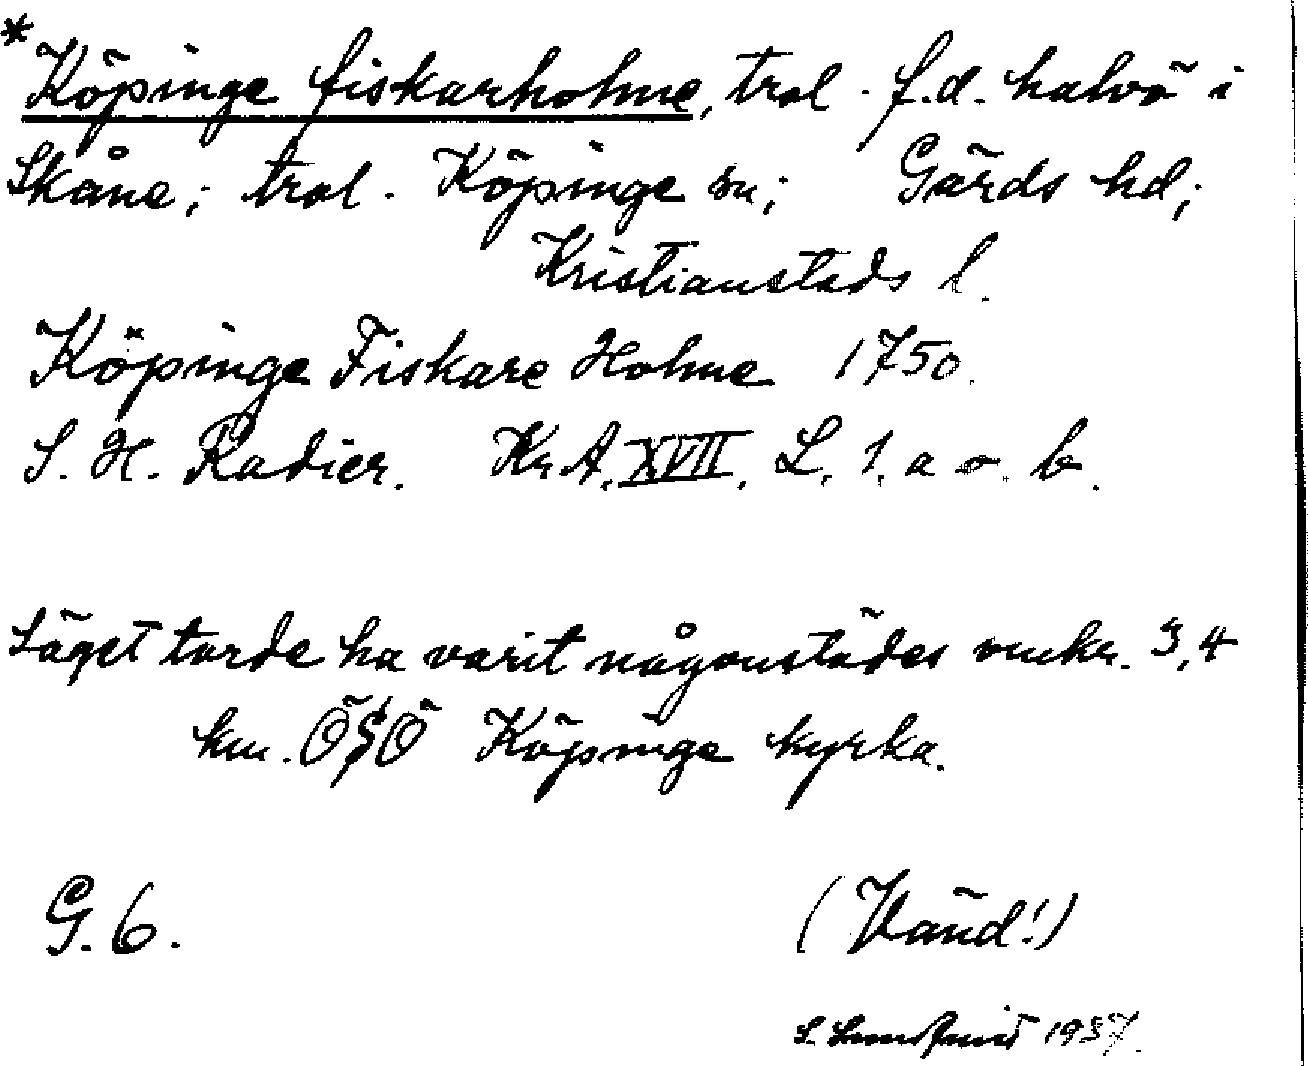 *Köpinge fiskarholme, trol. f.d. halvö i
Skåne; trol. Köpinge sn; Gärds hd;
Kristianstads l.
Köpinge Fiskare Holme 1750.
S. H. Radier. Kr. A. XVII. L. 1. a o. b.
Läget torde ha varit någonstädes omkr. 3,4
km. ÖSÖ Köpinge kyrka.
G. 6.
(Vänd!)
S. Lundqvist 1937.